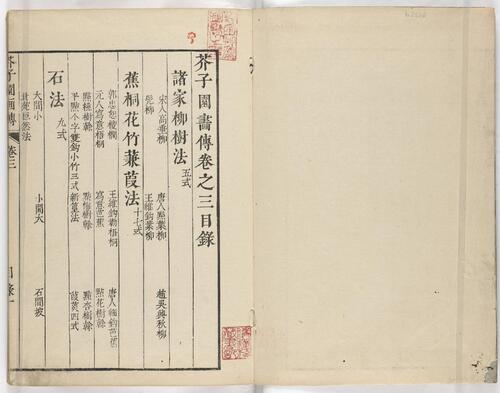 芥子園畫傳卷之三目錄
諸家柳樹法 五式
宋人高垂柳 唐人點葉柳 趙吳興秋柳
髡柳 王維鈎葉柳
蕉桐花竹蒹葭法 十七式
郭忠恕椶櫚 王維鈎勒梧桐 唐人鈎芭蕉
元人寫意梧桐 寫意芭蕉 點花樹幹
點桃樹幹 點梅樹幹 點杏樹幹
平點个字雙鈎小竹三式 新篁法 葭菼四式
石法 九式
大間小 小間大 石間坡
北苑巨然法
芥子園畫傳 卷三 目錄一